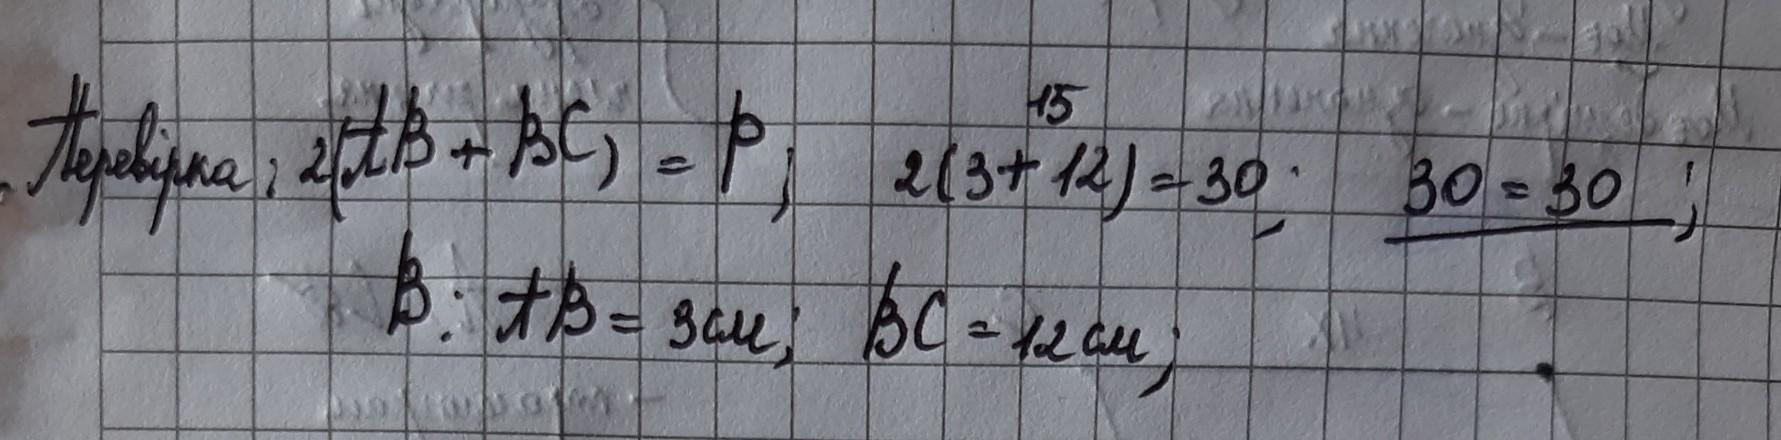 Перевірка: 2(AB + BC) = P; 2(3 + 12) = 30; 30 = 30;
15
В: AB = 3см; BC = 12см;